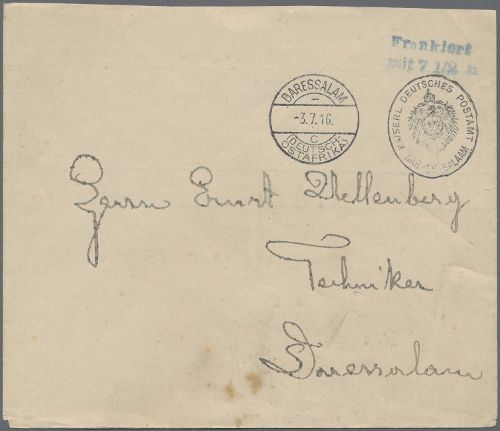 Frankiert
mit 7 1/2 H
DARESSALAM
-3.7.16.
C
(DEUTSCH-
OSTAFRIKA)
KAISERL. DEUTSCHES POSTAMT
DARESSALAAM
Herrn Ernst Schellenberg
Techniker
Daressalam